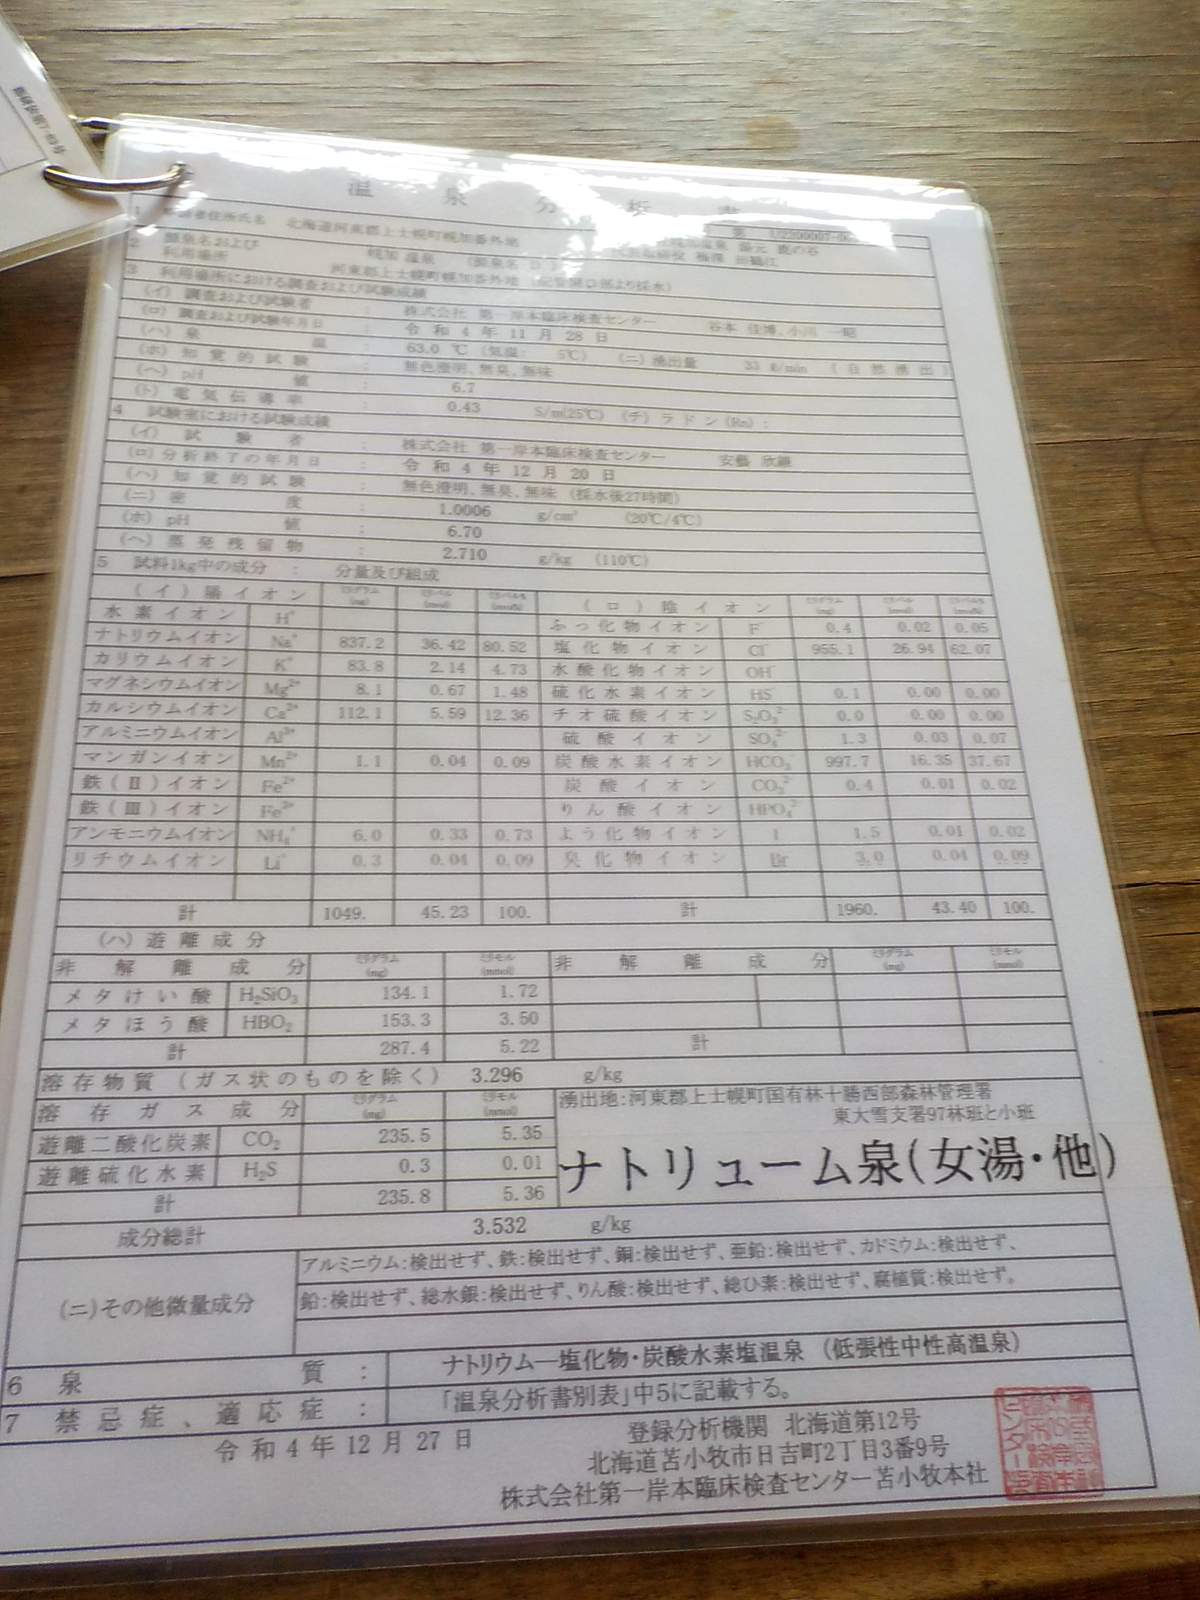 温泉分析書
北海道河東郡上士幌町幌加番外地
2 源泉名および 幌加 温泉 (源泉名 D )
利用場所 河東郡上士幌町幌加番外地
3 利用場所における調査および試験成績
(イ) 調査および試験者 : 株式会社 第一岸本臨床検査センター
(ロ) 調査および試験年月日 : 令和4年11月28日
(ハ) 泉温 : 63.0 ℃ (気温: 5℃) (ニ) 湧出量 33 ℓ/min (自然湧出)
(ホ) 知覚的試験 : 無色澄明、無臭、無味
(ヘ) pH値 : 6.7
(ト) 電気伝導率 : 0.43 S/m(25℃) (チ) ラドン(Rn) :
4 試験室における試験成績
(イ) 試験者 : 株式会社 第一岸本臨床検査センター
(ロ) 分析終了の年月日 : 令和4年12月20日
(ハ) 知覚的試験 : 無色澄明、無臭、無味 (採水後27時間)
(ニ) 密度 : 1.0006 g/cm³ (20℃/4℃)
(ホ) pH値 : 6.70
(ヘ) 蒸発残留物 : 2.710 g/kg (110℃)
5 試料1kg中の成分 : 分量及び組成
(イ) 陽イオン ミリグラム(mg) ミリバル(mval) ミリバル%(mval%) (ロ) 陰イオン ミリグラム(mg) ミリバル(mval) ミリバル%(mval%)
水素イオン H⁺ ふっ化物イオン F⁻ 0.4 0.02 0.05
ナトリウムイオン Na⁺ 837.2 36.42 80.52 塩化物イオン Cl⁻ 955.1 26.94 62.07
カリウムイオン K⁺ 83.8 2.14 4.73 水酸化物イオン OH⁻
マグネシウムイオン Mg²⁺ 8.1 0.67 1.48 硫化水素イオン HS⁻ 0.1 0.00 0.00
カルシウムイオン Ca²⁺ 112.1 5.59 12.36 チオ硫酸イオン S₂O₃²⁻ 0.0 0.00 0.00
アルミニウムイオン Al³⁺ 硫酸イオン SO₄²⁻ 1.3 0.03 0.07
マンガンイオン Mn²⁺ 1.1 0.04 0.09 炭酸水素イオン HCO₃⁻ 997.7 16.35 37.67
鉄(Ⅱ)イオン Fe²⁺ 炭酸イオン CO₃²⁻ 0.4 0.01 0.02
鉄(Ⅲ)イオン Fe³⁺ りん酸イオン HPO₄²⁻
アンモニウムイオン NH₄⁺ 6.0 0.33 0.73 よう化物イオン I 1.5 0.01 0.02
リチウムイオン Li⁺ 0.3 0.04 0.09 臭化物イオン Br 3.0 0.04 0.09
計 1049. 45.23 100. 計 1960. 43.40 100.
(ハ) 遊離成分
非解離成分 ミリグラム(mg) ミリモル(mmol) 非解離成分 ミリグラム(mg) ミリモル(mmol)
メタけい酸 H₂SiO₃ 134.1 1.72
メタほう酸 HBO₂ 153.3 3.50
計 287.4 5.22 計
溶存物質(ガス状のものを除く) 3.296 g/kg
溶存ガス成分 ミリグラム(mg) ミリモル(mmol)
遊離二酸化炭素 CO₂ 235.5 5.35
遊離硫化水素 H₂S 0.3 0.01
計 235.8 5.36
湧出地:河東郡上士幌町国有林十勝西部森林管理署
東大雪支署97林班と小班
ナトリューム泉(女湯・他)
成分総計 3.532 g/kg
(ニ)その他微量成分
アルミニウム:検出せず、鉄:検出せず、銅:検出せず、亜鉛:検出せず、カドミウム:検出せず、
鉛:検出せず、総水銀:検出せず、りん酸:検出せず、総ひ素:検出せず、腐植質:検出せず。
6 泉質 : ナトリウム―塩化物・炭酸水素塩温泉 (低張性中性高温泉)
7 禁忌症、適応症 : 「温泉分析書別表」中5に記載する。
令和4年12月27日
登録分析機関 北海道第12号
北海道苫小牧市日吉町2丁目3番9号
株式会社第一岸本臨床検査センター苫小牧本社